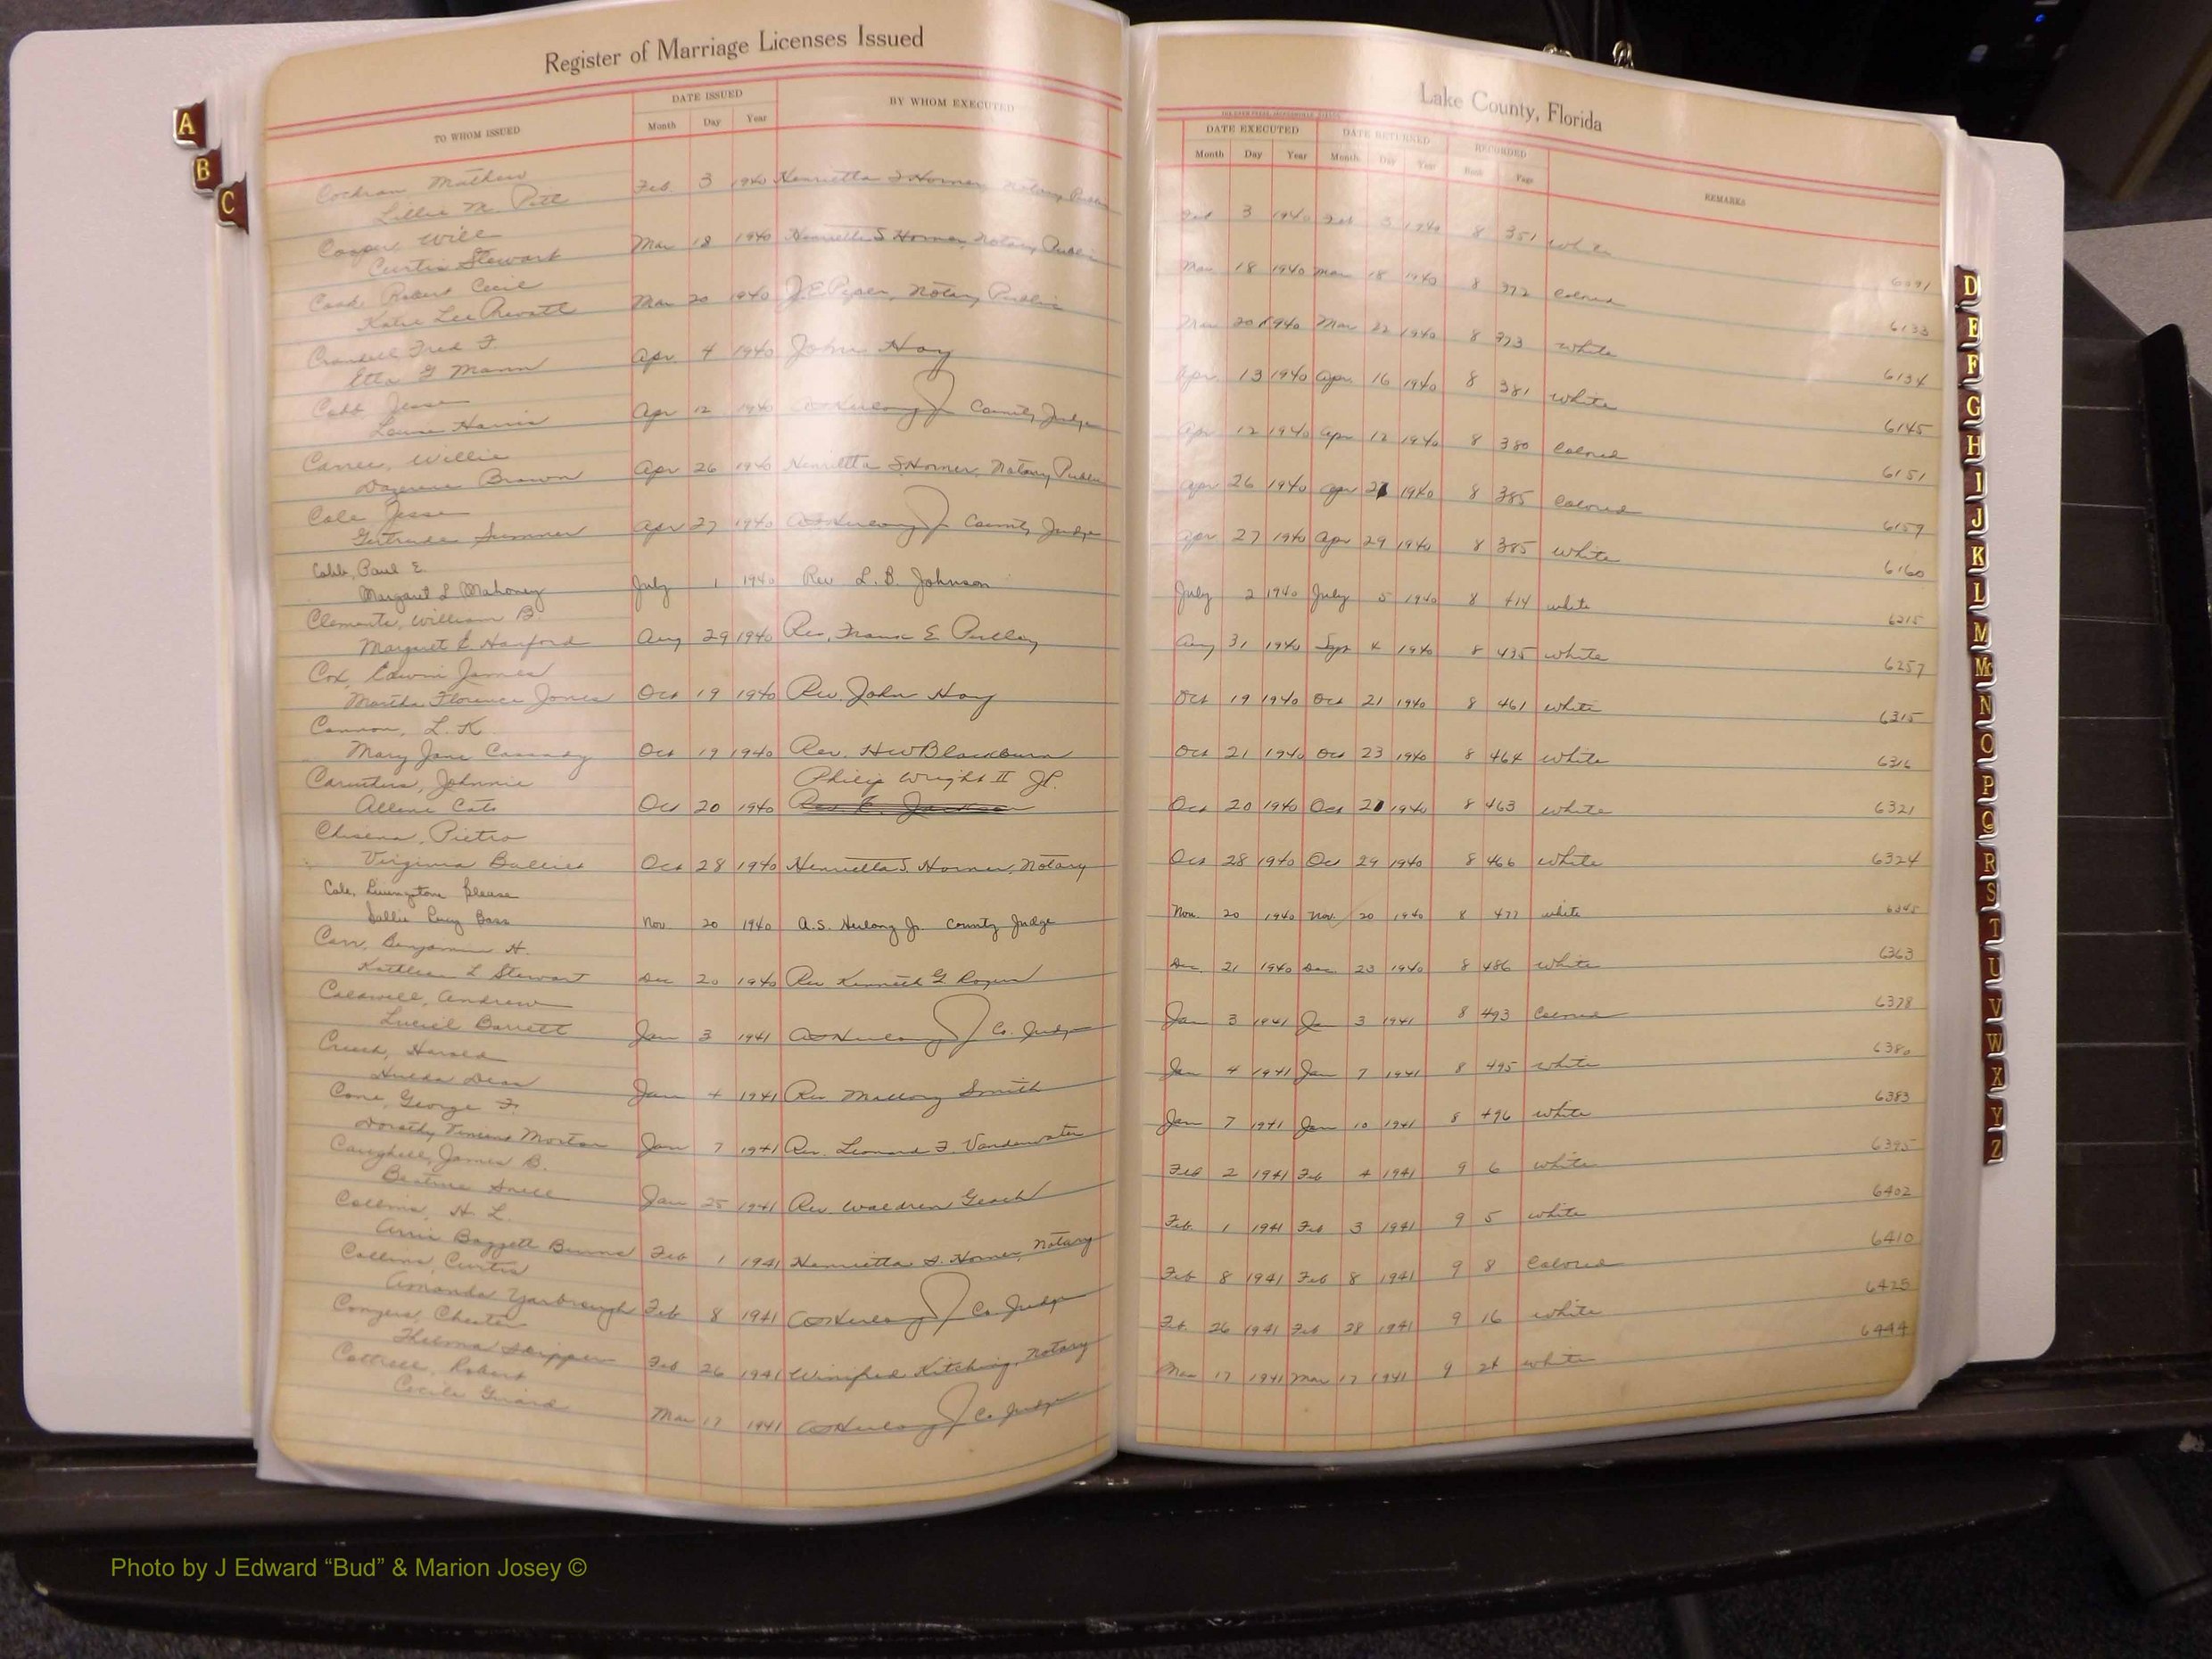 Register of Marriage Licenses Issued
TO WHOM ISSUED
DATE ISSUED
Month Day Year
BY WHOM EXECUTED
Cochran Mathew
Lillie M.
Feb. 3 1940 Henrietta S Horner, Notary Public
Cooper Will
Curtis Stewart
Mar 18 1940 Henrietta S Horner, Notary Public
Cook Robert Cecil
Katie Lee Prevatt
Mar 20 1940 J.E. Piper, Notary Public
Crandell Fred F.
Etta G Mann
Apr. 4 1940 John Hoy
Cobb Jesse
Louise Harris
Apr 12 1940 County Judge
Willie
Brown
Apr 26 1940 Henrietta S Horner, Notary Public
Cole Jesse
Gertrude Sumner
Apr 27 1940 County Judge
Cobb, Paul E.
Margaret L Mahoney
July 1 1940 Rev L. B. Johnson
Clements, William B.
Margaret E Harford
Aug 29 1940 Rev. Frank E
Cox, Edwin James
Martha Florence Jones
Oct 19 1940 Rev. John Hoy
Cannon, L. K
Mary Jane Cassady
Oct 19 1940 Rev. H W Blackburn
Caruthers, Johnnie
Allene Cato
Philip Wright II JP.
Oct 20 1940 Rev E. Jackson
Chisena, Pietro
Virginia
Oct 28 1940 Henrietta S. Horner, Notary
Cole, Livingstone Please
Sallie Bass
Nov 20 1940 A.S. Herlong Jr. County Judge
Carr, Benjamin H.
Kathleen L Stewart
Dec 20 1940 Rev Kenneth G Rogers
Caldwell, Andrew
Luciel Barrett
Jan 3 1941 Co. Judge
Creech, Harold
Hulda Dean
Jan 4 1941 Rev Mallory Smith
Cone, George F.
Dorothy Morton
Jan 7 1941 Rev. Leonard F. Vanderwater
Caughell, James B.
Beatrice Snell
Jan 25 1941 Rev Waldren Geach
Collins, H. L.
Annie Baggett Burns
Feb 1 1941 Henrietta S. Horner, Notary
Collins, Curtis
Amanda Yarbrough
Feb 8 1941 Co Judge
Conyers, Chester
Thelma Skipper
Feb 26 1941 Winifred Kitching, Notary
Cottrell, Robert
Cecile
Mar 17 1941 Co Judge
Lake County, Florida
DATE EXECUTED DATE RETURNED RECORDED
Month Day Year Month Day Year Book Page REMARKS
Feb 3 1940 Feb 5 1940 8 351 White
6091
Mar 18 1940 Mar 18 1940 8 372 Colored
6133
Mar 20 1940 Mar 22 1940 8 373 White
6134
Apr. 13 1940 Apr. 16 1940 8 381 White
6145
Apr 12 1940 Apr 12 1940 8 380 Colored
6151
Apr 26 1940 Apr 27 1940 8 385 Colored
6159
Apr 27 1940 Apr 29 1940 8 385 White
6160
July 2 1940 July 5 1940 8 414 White
6215
Aug 31 1940 Sept 4 1940 8 435 White
6257
Oct 19 1940 Oct 21 1940 8 461 White
6315
Oct 21 1940 Oct 23 1940 8 464 White
6316
Oct 20 1940 Oct 21 1940 8 463 White
6321
Oct 28 1940 Oct 29 1940 8 466 White
6324
Nov. 20 1940 Nov. 20 1940 8 477 White
6345
Dec 21 1940 Dec. 23 1940 8 486 White
6363
Jan 3 1941 Jan 3 1941 8 493 Colored
6378
Jan 4 1941 Jan 7 1941 8 495 White
6380
Jan 7 1941 Jan 10 1941 8 496 White
6383
Feb 2 1941 Feb 4 1941 9 6 White
6395
Feb. 1 1941 Feb 3 1941 9 5 White
6402
Feb 8 1941 Feb 8 1941 9 8 Colored
6410
Feb. 26 1941 Feb 28 1941 9 16 White
6425
Mar 17 1941 Mar 17 1941 9 24 White
6444
A
B
C
D
E
F
G
H
I
J
K
L
M
Mc
N
O
P
Q
R
S
T
U
V
W
X
Y
Z
Photo by J Edward “Bud” & Marion Josey ©